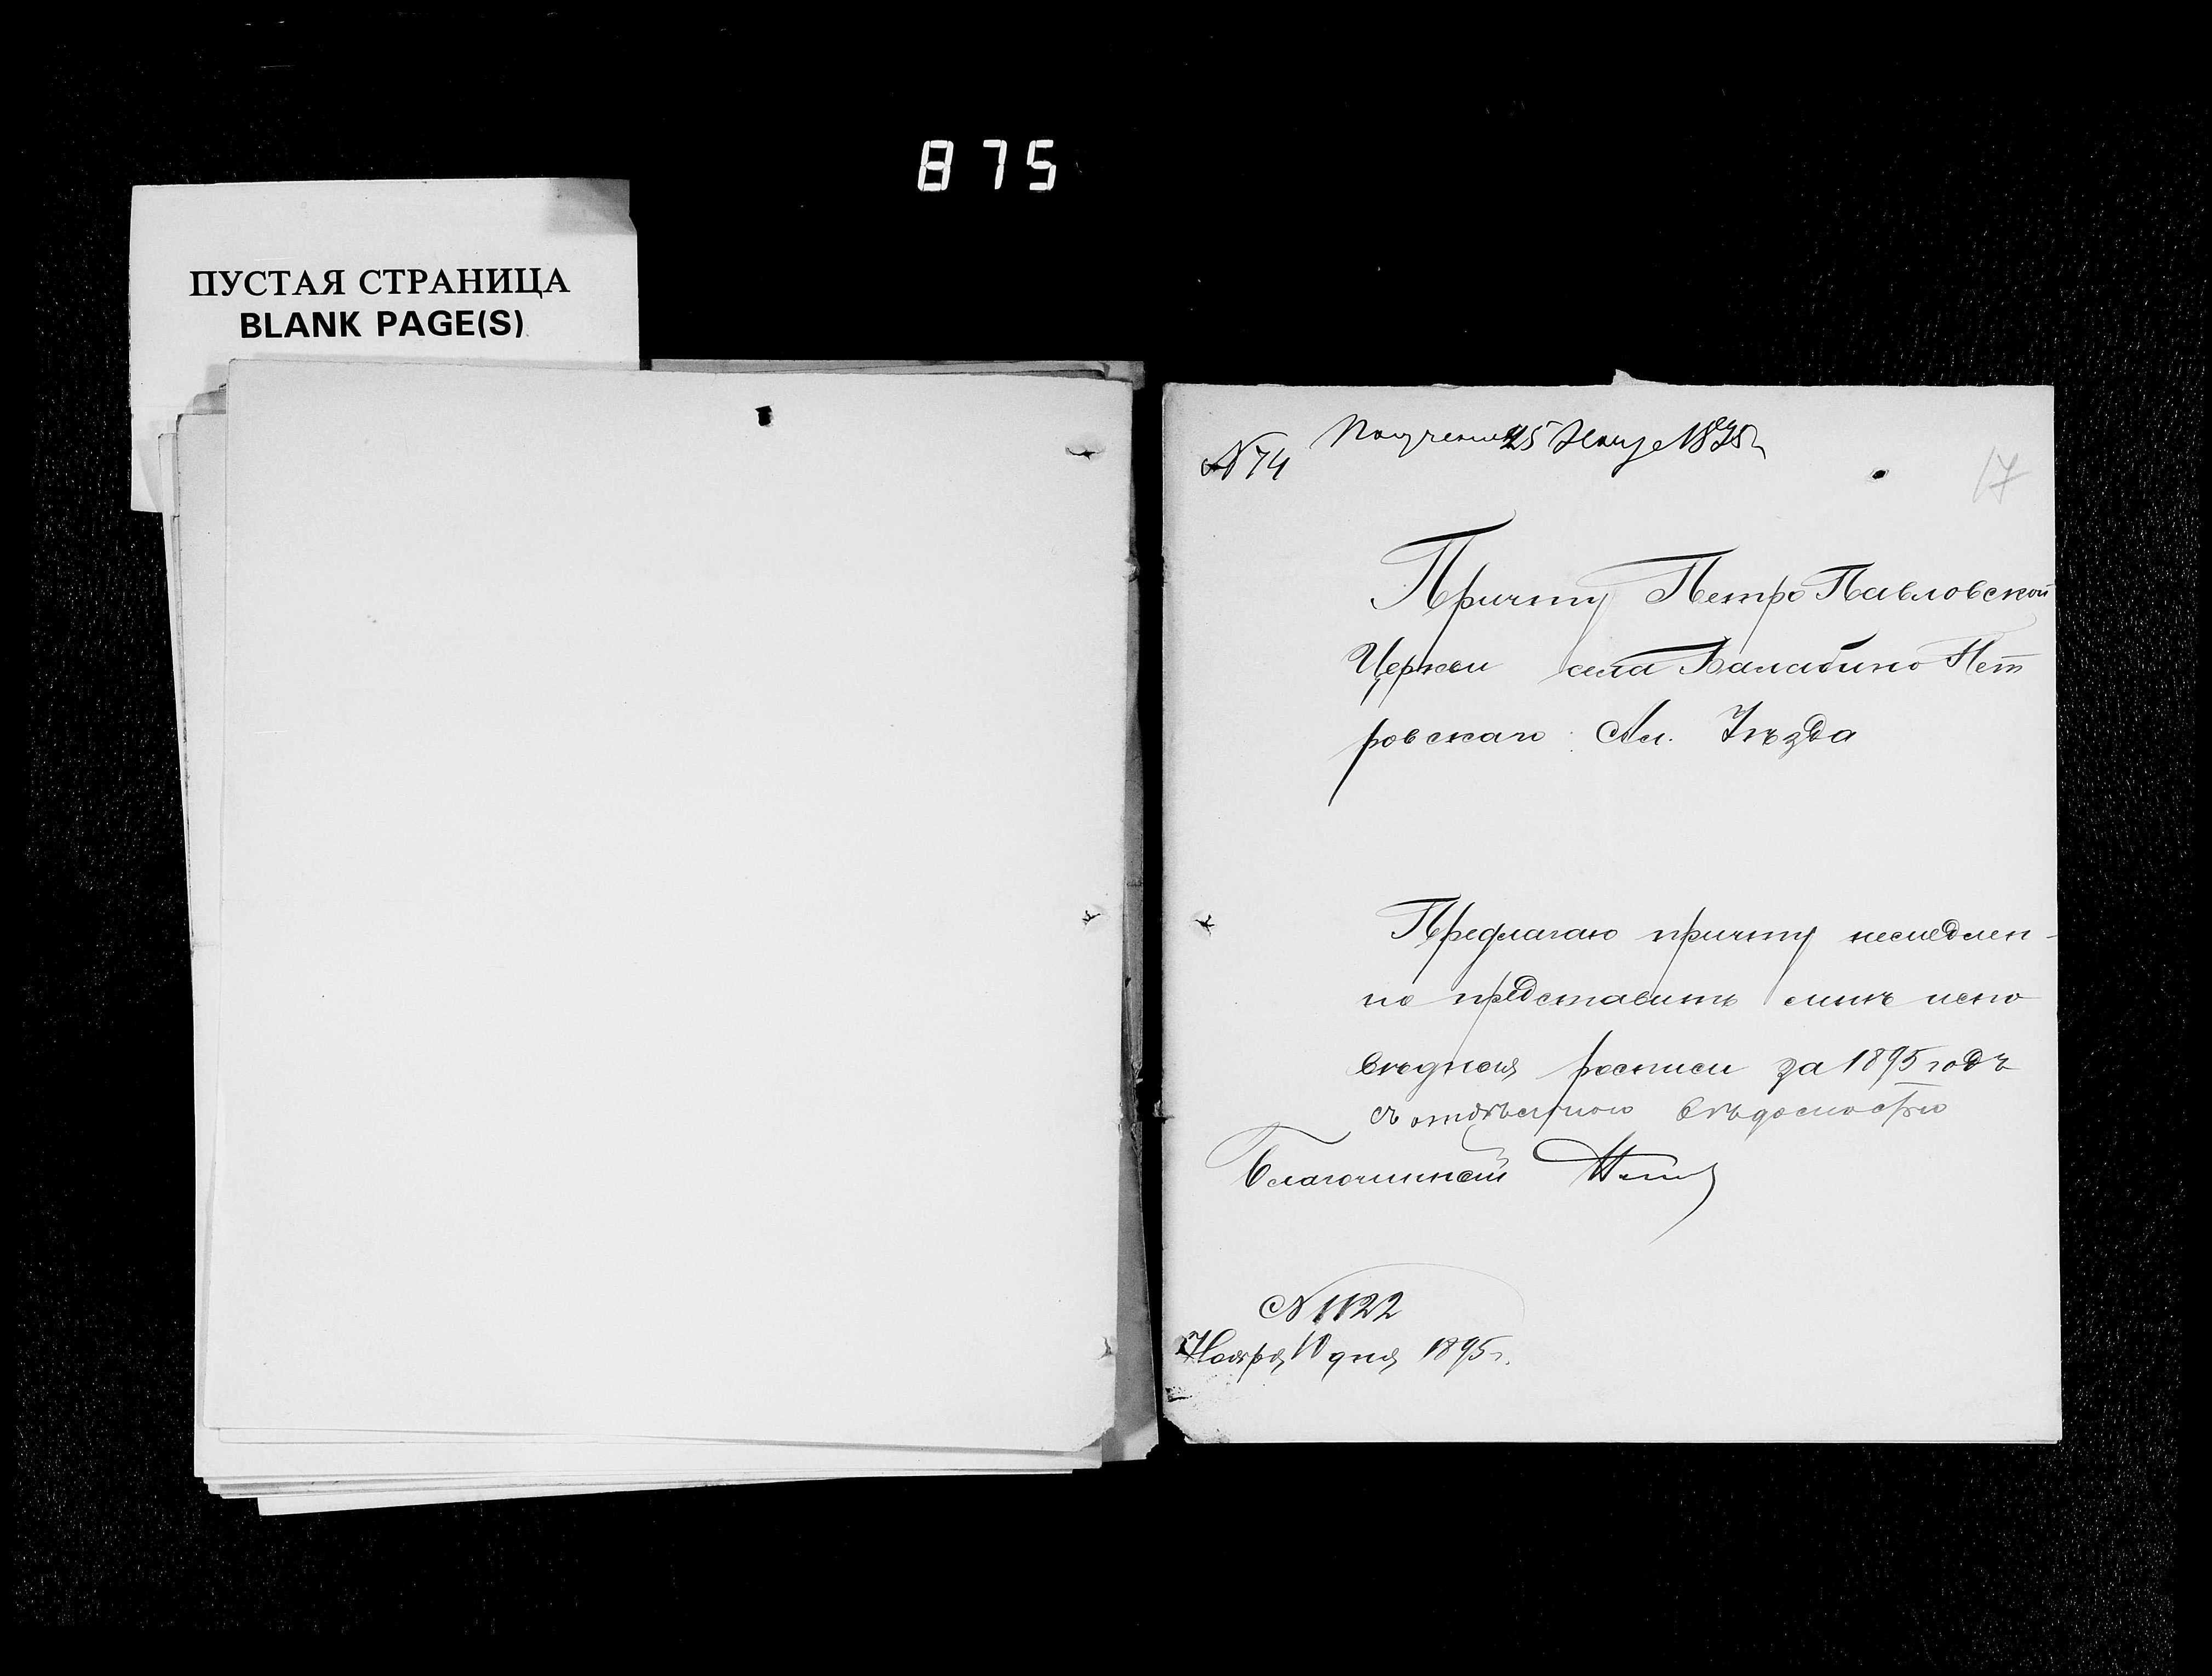 875
ПУСТАЯ СТРАНИЦА
BLANK PAGE(S)
Получено 25 1895 г
№ 74
17
Причту Петро Павловской
Церкви села Балабино Пет
ровскаго Ал. Уѣзда
Предлагаю причту немедлен-
но представить мнѣ испо
вѣдныя росписи за 1895 годъ
съ отдѣльною вѣдомостью
Благочинный
№ 1122
Ноября 10 дня 1895 г.